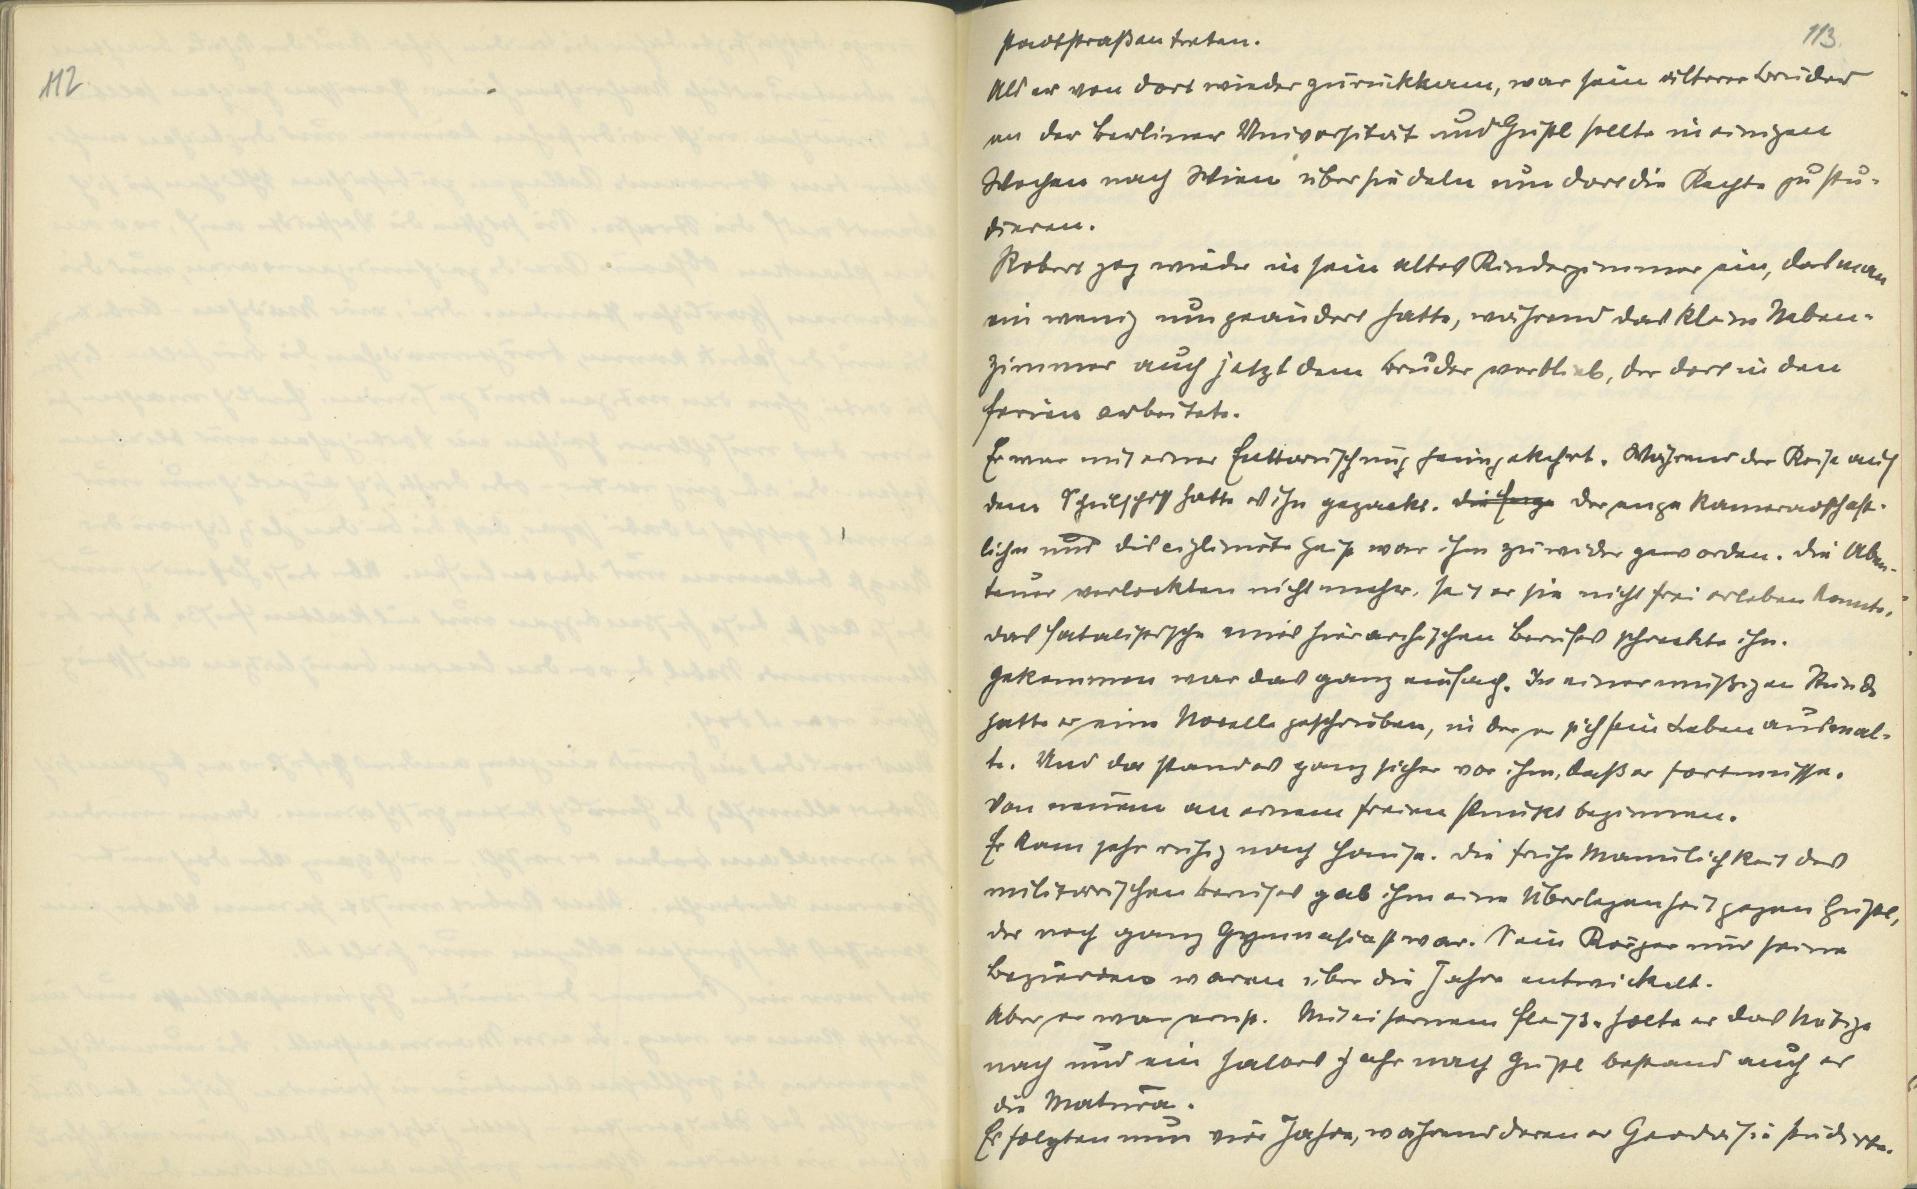 112
113.
stadtstraßen treten.
Als er von dort wieder zurückkam, war sein älterer Bruder
an der Berliner Universität und Gustl sollte in einigen
Wochen nach Wien übersiedeln um dort die Rechte zu stu-
dieren.
Robert zog wieder in sein altes Kinderzimmer ein, das man
ein wenig umgeändert hatte, während das kleine Neben-
zimmer auch jetzt dem Bruder verblieb, der dort in den
Ferien arbeitete.
Er war mit einer Enttäuschung heimgekehrt. Während der Reise auf
dem Schulschiff hatte es ihn gepackt. Der enge kameradschaft-
liche und disciplinirte Geist war ihm zuwider geworden. Die Aben-
teuer verlockten nicht mehr, seit er sie nicht frei erleben konnte,
das fatalistische eines hierarchischen Berufes schreckte ihn.
Gekommen war das ganz einfach. In einer müßigen Stunde
hatte er eine Novelle geschrieben, in der er sich sein Leben ausmal-
te. Und da stand es ganz sicher vor ihm, daß er fort müsse.
Von neuem an einem freien Punkt beginnen.
Er kam sehr ruhig nach Hause. Die frühe Männlichkeit des
militärischen Berufes gab ihm eine Überlegenheit gegen Gustl,
der noch ganz Gymnasiast war. Sein Körper und seine
Begierden waren über die Jahre entwickelt.
Aber er war ernst. Mit eisernem Fleiß holte er das Nötige
nach und ein halbes Jahr nach Gustl bestand auch er
die Matura.
Es folgten nun vier Jahre, während deren er Geodäsie studirte.